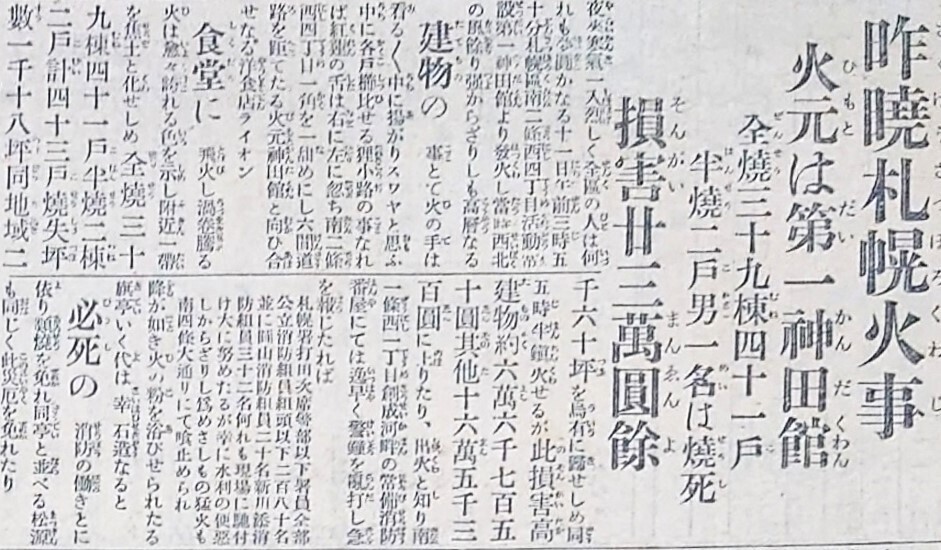 昨曉札幌火事
火元は第一神田館
全燒三十九棟四十一戸
半燒二戸男一名は燒死
損害廿三萬圓餘
夜來寒氣一入烈しく全區の人は何
れも夢圓かなる十一日午前三時五
十分札幌區南二條西四丁目活動常
設第一神田館より發火し當時西北
の風餘り強からざりしも高層なる
建物の 事とて火の手は
看る〱中に揚がりスワヤと思ふ
中に各戸櫛比せる狸小路の事なれ
ば紅蓮の舌は右に左に忽ち南二條
西四丁目一角を一甜めにし六間道
路を距てたる火元神田館と向ひ合
せなる洋食店ライオン
食堂に 飛火し渦卷騰る
火は愈々誇れる色を示し附近一帶
を焦土と化せしめ全燒三十
九棟四十一戸半燒二棟
二戸計四十三戸燒失坪
數一千十八坪同地域二
千六十坪を烏有に歸せしめ同
五時半鎭火せるが此損害高
建物約六萬六千七百五
十圓其他十六萬五千三
百圓に上りたり、出火と知り南
一條西一丁目創成河畔の常備消防
番屋にては逸早く警鐘を亂打し急
を報じたれば
札幌署打田火席警部以下署員全部
公立消防組員組頭以下二百八十名
並に圓山消防組員二十名新川添消
防組員三十二名何れも現場に馳付
け大に努めたるが幸に水利の便惡
しからざりし爲めさしもの猛火も
南四條大通りにて喰止められ
降るが如き火の粉を浴びせられたる
旗亭いく代は 幸 石造なると
必死の 消防の働きとに
依り類燒を免れ同亭と並べる松源
も同じく此災厄を免れたり